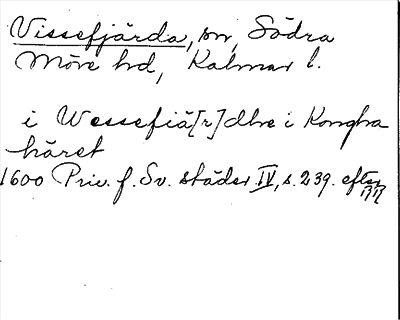 Vissefjärda, sn, Södra
Möre hd, Kalmar l.
i Wessefiä[r]dhe i Kongha
häret
1600 Priv. f. Sv. städer IV, s. 239. efter